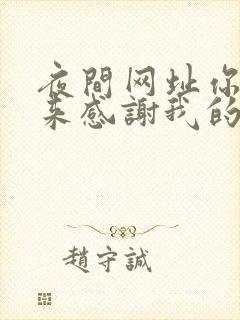 夜間网址你
来感謝我的
趙守誠